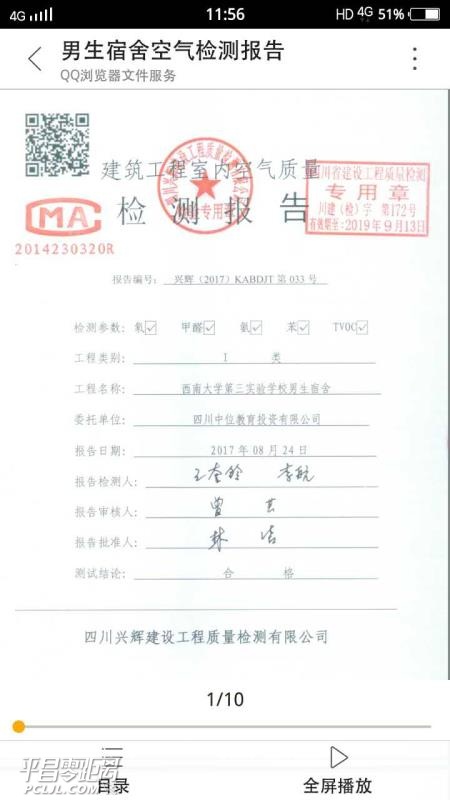 4G 11:56 HD 4G 51%
男生宿舍空气检测报告
QQ浏览器文件服务
建筑工程室内空气质量
检测报告
MA
2014230320R
四川省建设工程质量检测
专用章
川建(检)字 第172号
有效期至:2019年9月13日
报告编号: 兴辉(2017)KABDJT 第 033 号
检测参数: 氡 甲醛 氨 苯 TVOC
工程类别: I 类
工程名称: 西南大学第三实验学校男生宿舍
委托单位: 四川中位教育投资有限公司
报告日期: 2017 年 08 月 24 日
报告检测人: 李航
报告审核人: 曾
报告批准人: 林洁
测试结论: 合 格
四川兴辉建设工程质量检测有限公司
1/10
目录 全屏播放
平昌零距离
PCLJL.COM